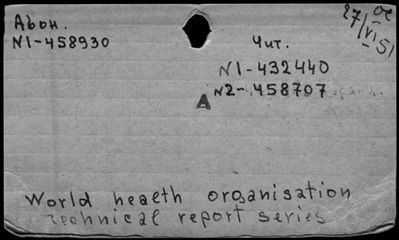 Абон.
N1-458930
27/VI 51
Чит.
N1-432440
N2-458707
A
World heaeth organisation
Technical report series